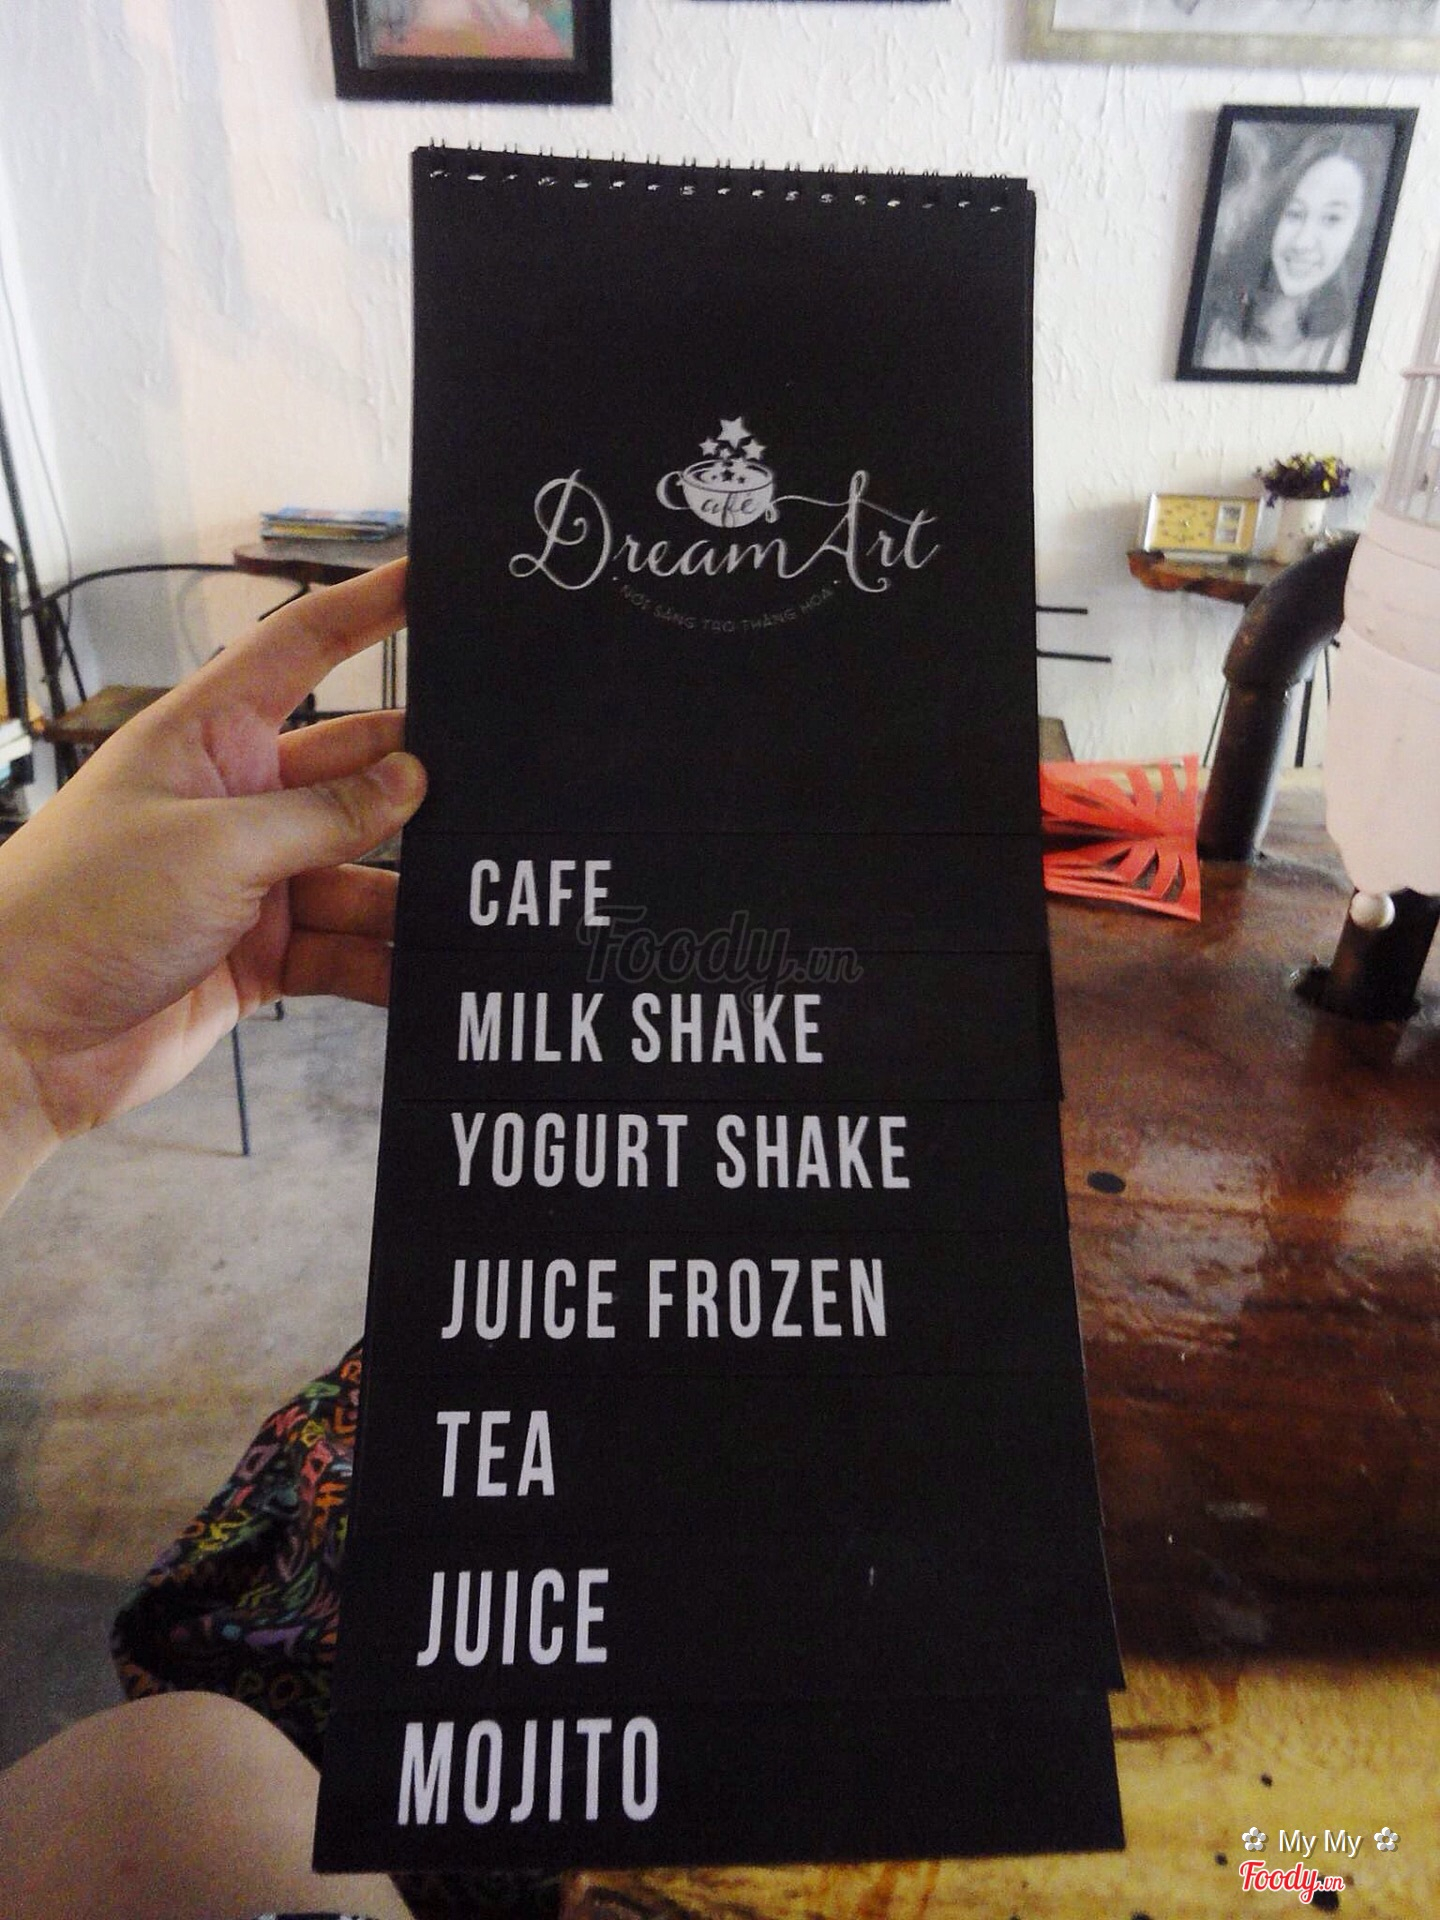 Cafe
DreamArt
NƠI SÁNG TẠO THĂNG HOA
CAFE
MILK SHAKE
YOGURT SHAKE
JUICE FROZEN
TEA
JUICE
MOJITO
Foody.vn
✿ My My ✿
Foody.vn